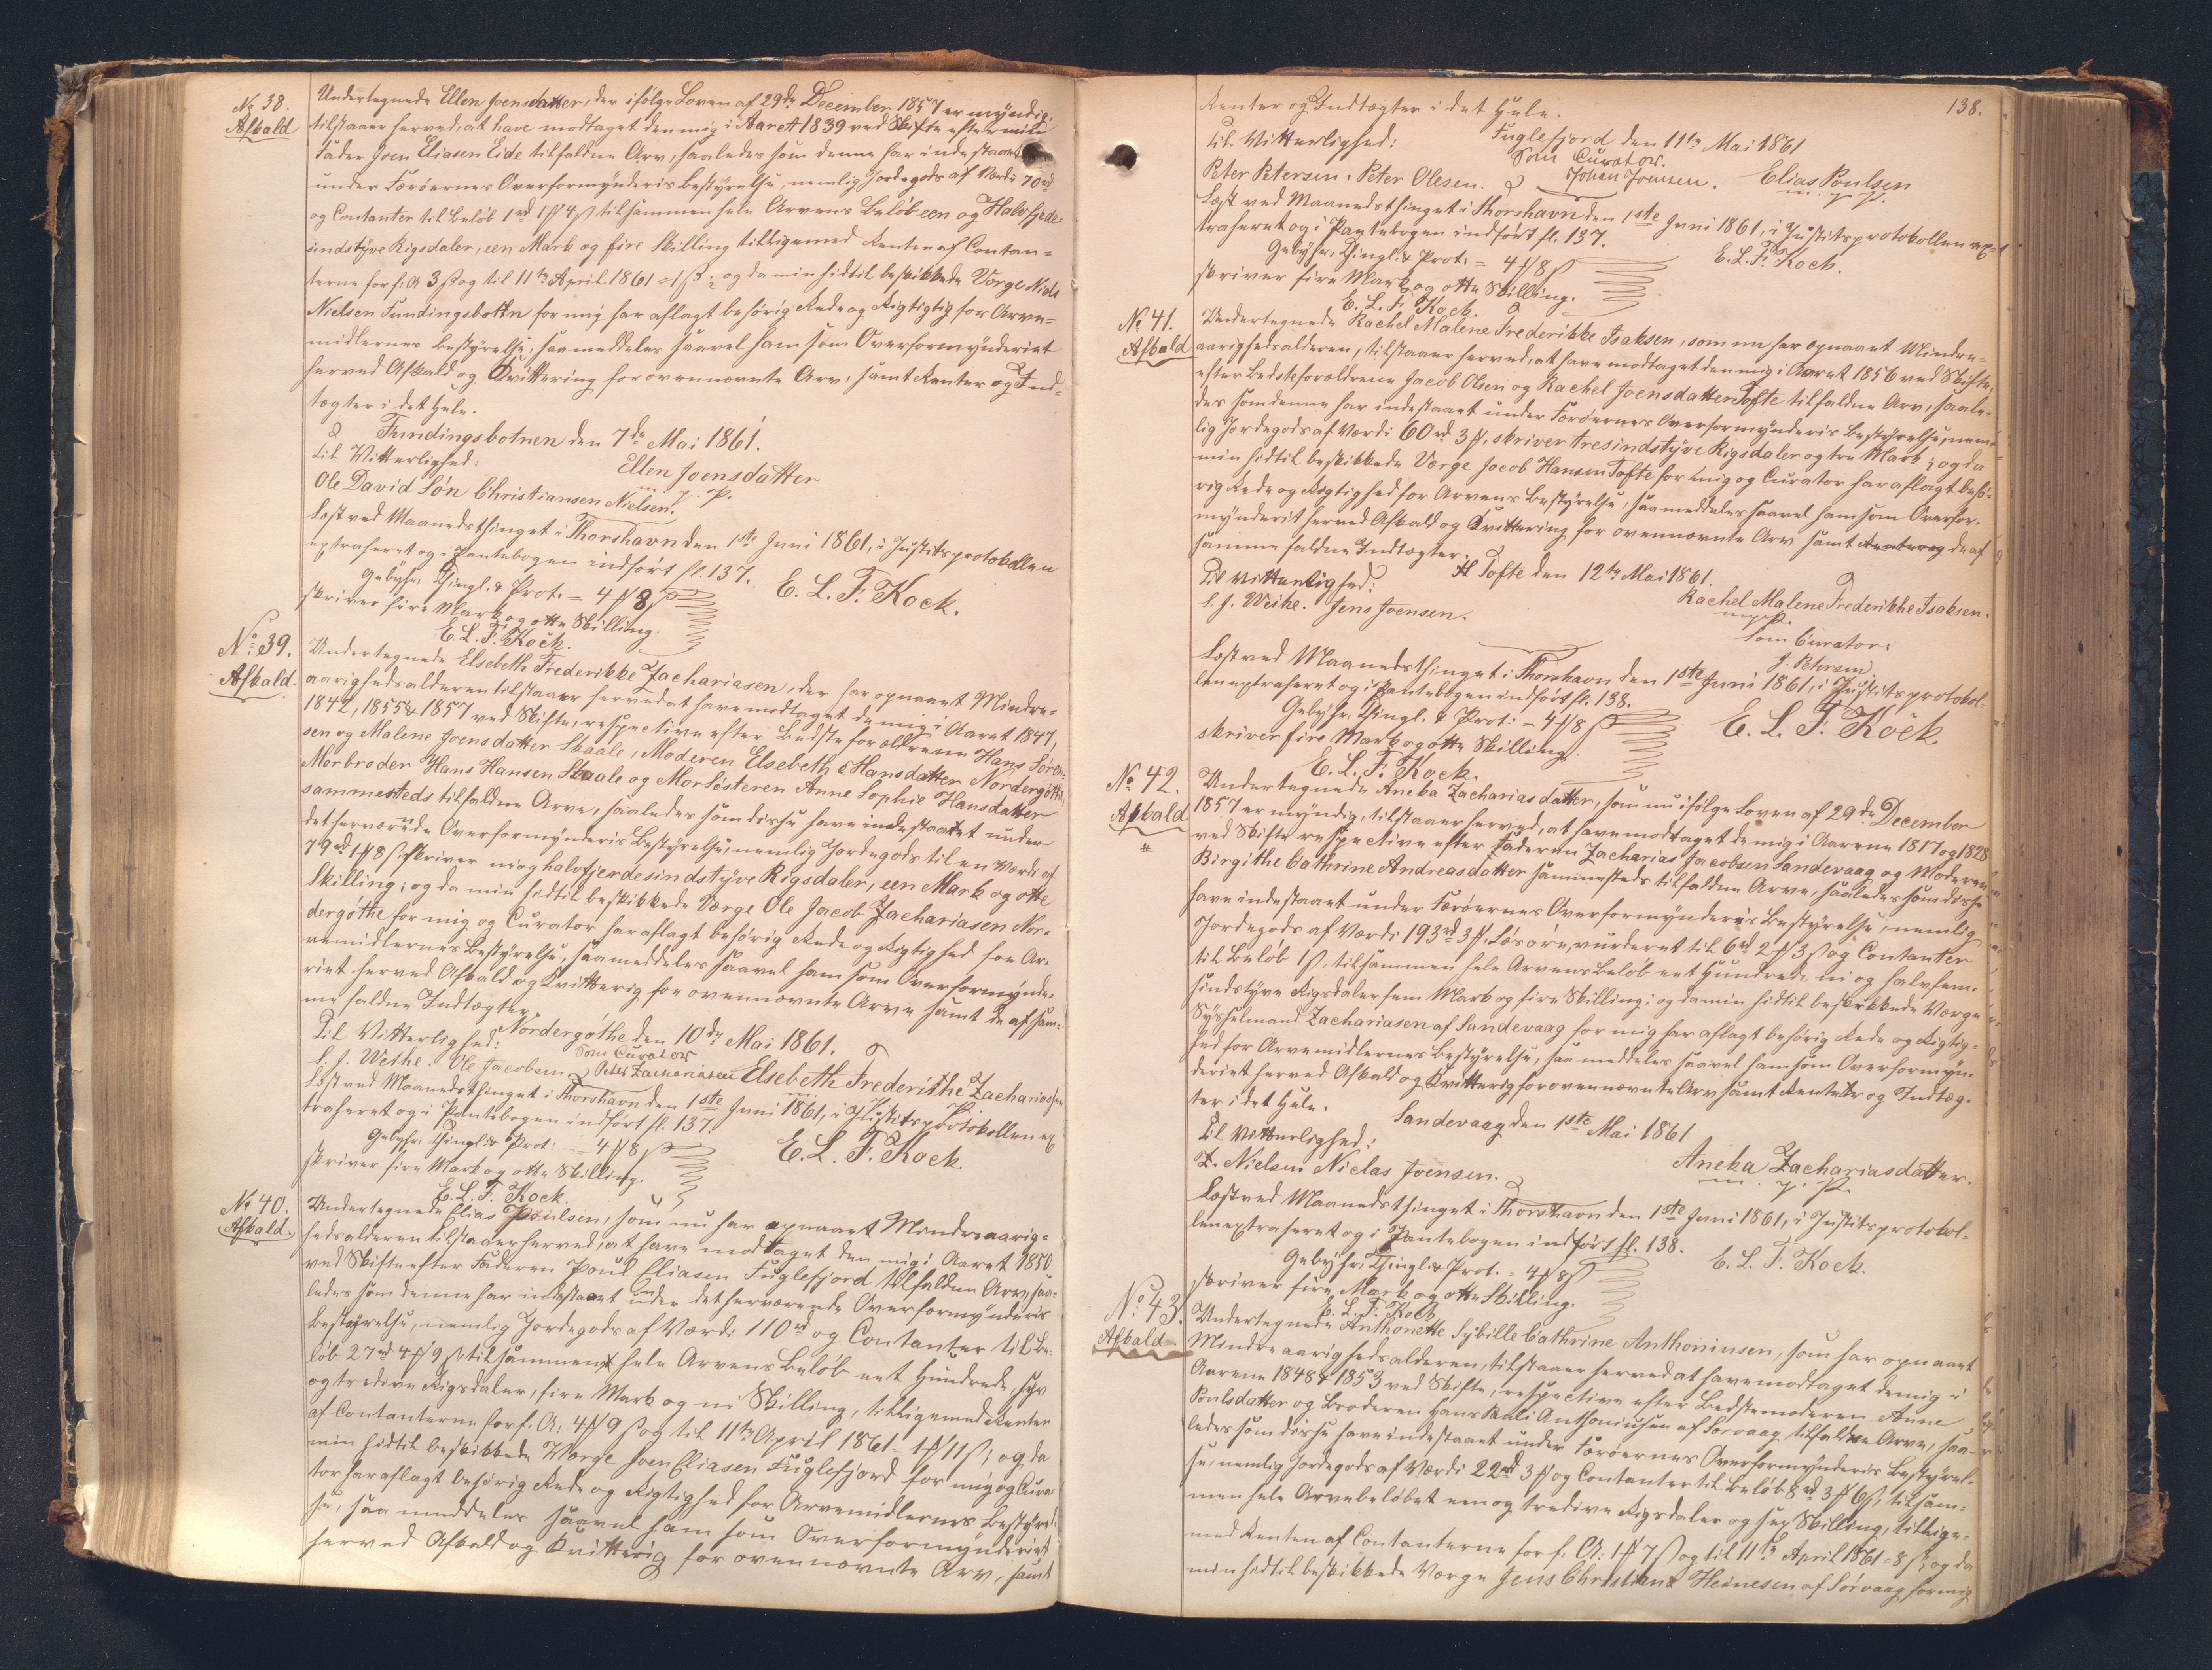 No 38.
Afkald
Undertegnede Ellen Joensdatter, der ifølge Loven af 29de December 1857 er myndig,
tilstaaer herved, at have modtaget den mig i Aaret 1839 ved Skifte efter min
Fader Joen Eliasen Eide tilfaldne Arv, saaledes som denne har indestaaet
under Færøernes Overformynderis Bestyrelse, nemlig Jordegods af Værdi 70rd
og Contanter til Beløb 1rd 1# 4ß tilsammen hele Arvens Beløb een og Halvfjerde-
sindstyve Rigsdaler, een Mark og fire Skilling tilligemed Renten af Contan-
terne for f. A 3ß og til 11te April 1861 1ß; og da min hidtil beskikkede Værge Niels
Nielsen Fundingsbottn for mig har aflagt behørig Rede og Rigtigtig for Arve-
midlernes Bestyrelse, saa meddeles saavel ham som Overformynderiet
herved Afkald og Kvittering for ovennævnte Arv, samt Renter og Ind-
tægter i det Hele.
Fundingsbotnen den 7de Mai 1861.
Til Vitterlighed:
Ellen Joensdatter
m. f. P.
Ole David Søn Christiansen Nielsen.
Læst ved Maanedsthinget i Thorshavn den 1ste Juni 1861, i Justitsprotokollen
extraheret og i Pantebogen indført fl. 137.
E. L. F. Kock.
Gebyhr. Thingl. & Prot. = 4# 8ß
skriver fire Mark og otte Skilling.
E. L. F. Kock.
No 39.
Afkald.
Undertegnede Elsebeth Frederikke Zachariasen, der har opnaaet Mindre-
aarighedsalderen tilstaaer herved at have modtaget de mig i Aaret 1847,
1842, 1855 & 1857 ved Skifte, respective efter Bedsteforældrene Hans Søren-
sen og Malene Joensdatter Skaale, Moderen Elsebeth Hansdatter Nordergøthe,
Morbroder Hans Hansen Skaale og MorSøsteren Anne Sophie Hansdatter
sammesteds tilfaldne Arve, saaledes som disse have indestaaet under
det herværende Overformynderis Bestyrelse, nemlig Jordegods til en Værdi af
79rd 1# 8ß skriver ni og halvfjerdesindstyve Rigsdaler, een Mark og otte
Skilling; og da min hidtil beskikkede Værge Ole Jacob Zachariasen Nor-
dergøthe for mig og Curator har aflagt behørig Rede og Rigtighed for Ar-
vemidlernes Bestyrelse, saa meddeles saavel ham som Overformynde-
riet herved Afkald og Kvitterig for ovennævnte Arve samt de af sam-
me faldne Indtægter.
Nordergøthe den 10de Mai 1861.
Til Vitterlighed:
Som Curator
S. J. Weihe. Ole Jacobsen Peter Zachariasen Elsebeth Frederikke Zachariasen
Læst ved Maanedsthinget i Thorshavn den 1ste Juni 1861, i Justitsprotokollen ex
traheret og i Pantebogen indført fl. 137.
Gebyhr. Thingl & Prot: 4# 8ß
E. L. F. Kock.
skriver fire Mark og otte Skilling.
E. L. F. Kock.
No 40.
Afkald.
Undertegnede Elias Poulsen, som nu har opnaaet Mindreaarig-
hedsalderen tilstaaer herved, at have modtaget den mig i Aaret 1850
ved Skifte efter Faderen Poul Eliasen Fuglefjord tilfaldne Arv, saa-
ledes som denne har indestaaet under det herværende Overformynderis
Bestyrelse, nemlig Jordegods af Værdi 110rd og Contanter til Be-
løb 27rd 4# 9ß tilsammen hele Arvens Beløb eet Hundrede syv
og tredive Rigsdaler, fire Mark og ni Skilling, tilligemed Renten
af Contanterne for f. A: 4# 9ß og til 11te April 1861 - 1# 11ß; og da
min hidtil beskikkede Værge Joen Eliasen Fuglefjord for mig og Cura-
tor har aflagt behørig Rede og Rigtighed for Arvemidlernes Bestyrel-
se, saa meddeles saavel ham som Overformynderiet
herved Afkald og Kvitterig for ovennævnte Arv, samt
138.
Renter og Indtægter i det Hele.
Fuglefjord den 11te Mai 1861
Til Vitterlighed:
Som Curator.
Peter Petersen. Peter Olesen. Johan Joensen. Elias Poulsen
m. f. P.
Læst ved Maanedsthinget i Thorshavn den 1ste Juni 1861, i Justitsprotokollen ex-
traheret og i Pantebogen indført fl. 137.
E. L. F. Kock.
Gebyhr. Thingl. & Prot. = 4# 8ß
skriver fire Mark og otte Skilling.
E. L. F. Kock.
No 41.
Afkald
Undertegnede Rachel Malene Frederikke Isaksen, som nu har opnaaet Mindre-
aarighedsalderen, tilstaaer herved, at have modtaget den mig i Aaret 1856 ved Skifte,
efter Bedsteforældrene Jacob Olsen og Rachel Joensdatter Tofte tilfaldne Arv, saale-
des som denne har indestaaet under Færøernes Overformynderis Bestyrelse, nem-
lig Jordegods af Værdi 60rd 3#, skriver tresindstyve Rigsdaler og tre Mark; og da
min hidtil beskikkede Værge Jacob Hansen Tofte for mig og Curator har aflagt behø-
rig Rede og Rigtighed for Arvens Bestyrelse, saa meddeles saavel ham som Overfor-
mynderiet herved Afkald og Kvittering for ovennævnte Arv samt Renter og de af
samme faldne Indtægter.
Tofte den 12te Mai 1861.
Til Vitterlighed:
Rachel Malene Frederikke Isaksen.
S. J. Weihe. Jens Joensen.
m. f. P.
Som Curator:
J. Petersen
Læst ved Maanedsthinget i Thorshavn den 1ste Juni 1861, i Justitsprotokol-
len extraheret og i Pantebogen indført fl. 138.
Gebyhr. Thingl. & Prot: - 4# 8ß
E. L. F. Kock.
skriver fire Mark og otte Skilling.
E. L. F. Kock.
No 42.
Afkald
Undertegnede Aneka Zachariasdatter, som nu ifølge Loven af 29de December
1857 er myndig, tilstaaer herved, at have modtaget de mig i Aarene 1817 og 1828
ved Skifte respective efter Faderen Zacharias Jacobsen Sandevaag og Moderen
Birgithe Cathrine Andreasdatter sammesteds tilfaldne Arve, saaledes som disse
have indestaaet under Færøernes Overformynderis Bestyrelse, nemlig
Jordegods af Værdi 193rd 3#, Løsøre, vurderet til 6rd 2# 3ß og Contanter
til Beløb 1ß, tilsammen hele Arvens Beløb eet Hundrede, ni og halvfem-
sindstyve Rigsdaler fem Mark og fire Skilling; og da min hidtil beskikkede Værge
Sysselmand Zachariasen af Sandevaag for mig har aflagt behørig Rede og Rigtig-
hed for Arvemidlernes Bestyrelse, saa meddeles saavel ham som Overformyn-
deriet herved Afkald og Kvitterig for ovennævnte Arv samt Renter og Indtæg-
ter i det Hele.
Sandevaag den 1ste Mai 1861
Til Vitterlighed:
Aneka Zachariasdatter.
Z. Nielsen Niclas Joensen.
m. f. P.
Læst ved Maanedsthinget i Thorshavn den 1ste Juni 1861, i Justitsprotokol-
len extraheret og i Pantebogen indført fl. 138.
Gebyhr. Thingl. & Prot. = 4# 8ß
E. L. F. Kock.
skriver fire Mark og otte Skilling.
E. L. F. Kock
No 43.
Afkald
Undertegnede Anthonette Sybille Cathrine Anthoniusen, som har opnaaet
Mindreaarighedsalderen, tilstaaer herved at have modtaget de mig i
Aarene 1848 & 1853 ved Skifte, respective efter Bedstemoderen Anne
Poulsdatter og Broderen Hans Pauli Anthoniusen af Sørvaag tilfaldne Arve, saa-
ledes som disse have indestaaet under Færøernes Overformynderis Bestyrel-
se, nemlig Jordegods af Værdi 22rd 3# og Contanter til Beløb 8rd 3# 6ß, tilsam-
men hele Arvebeløbet een og tredive Rigsdaler og sex Skilling, tillige-
med Renten af Contanterne for f. A: 1# 7ß og til 11te April 1861 = 8ß, og da
min hidtil beskikkede Værge Jens Christian Heinesen af Sørvaag for mig